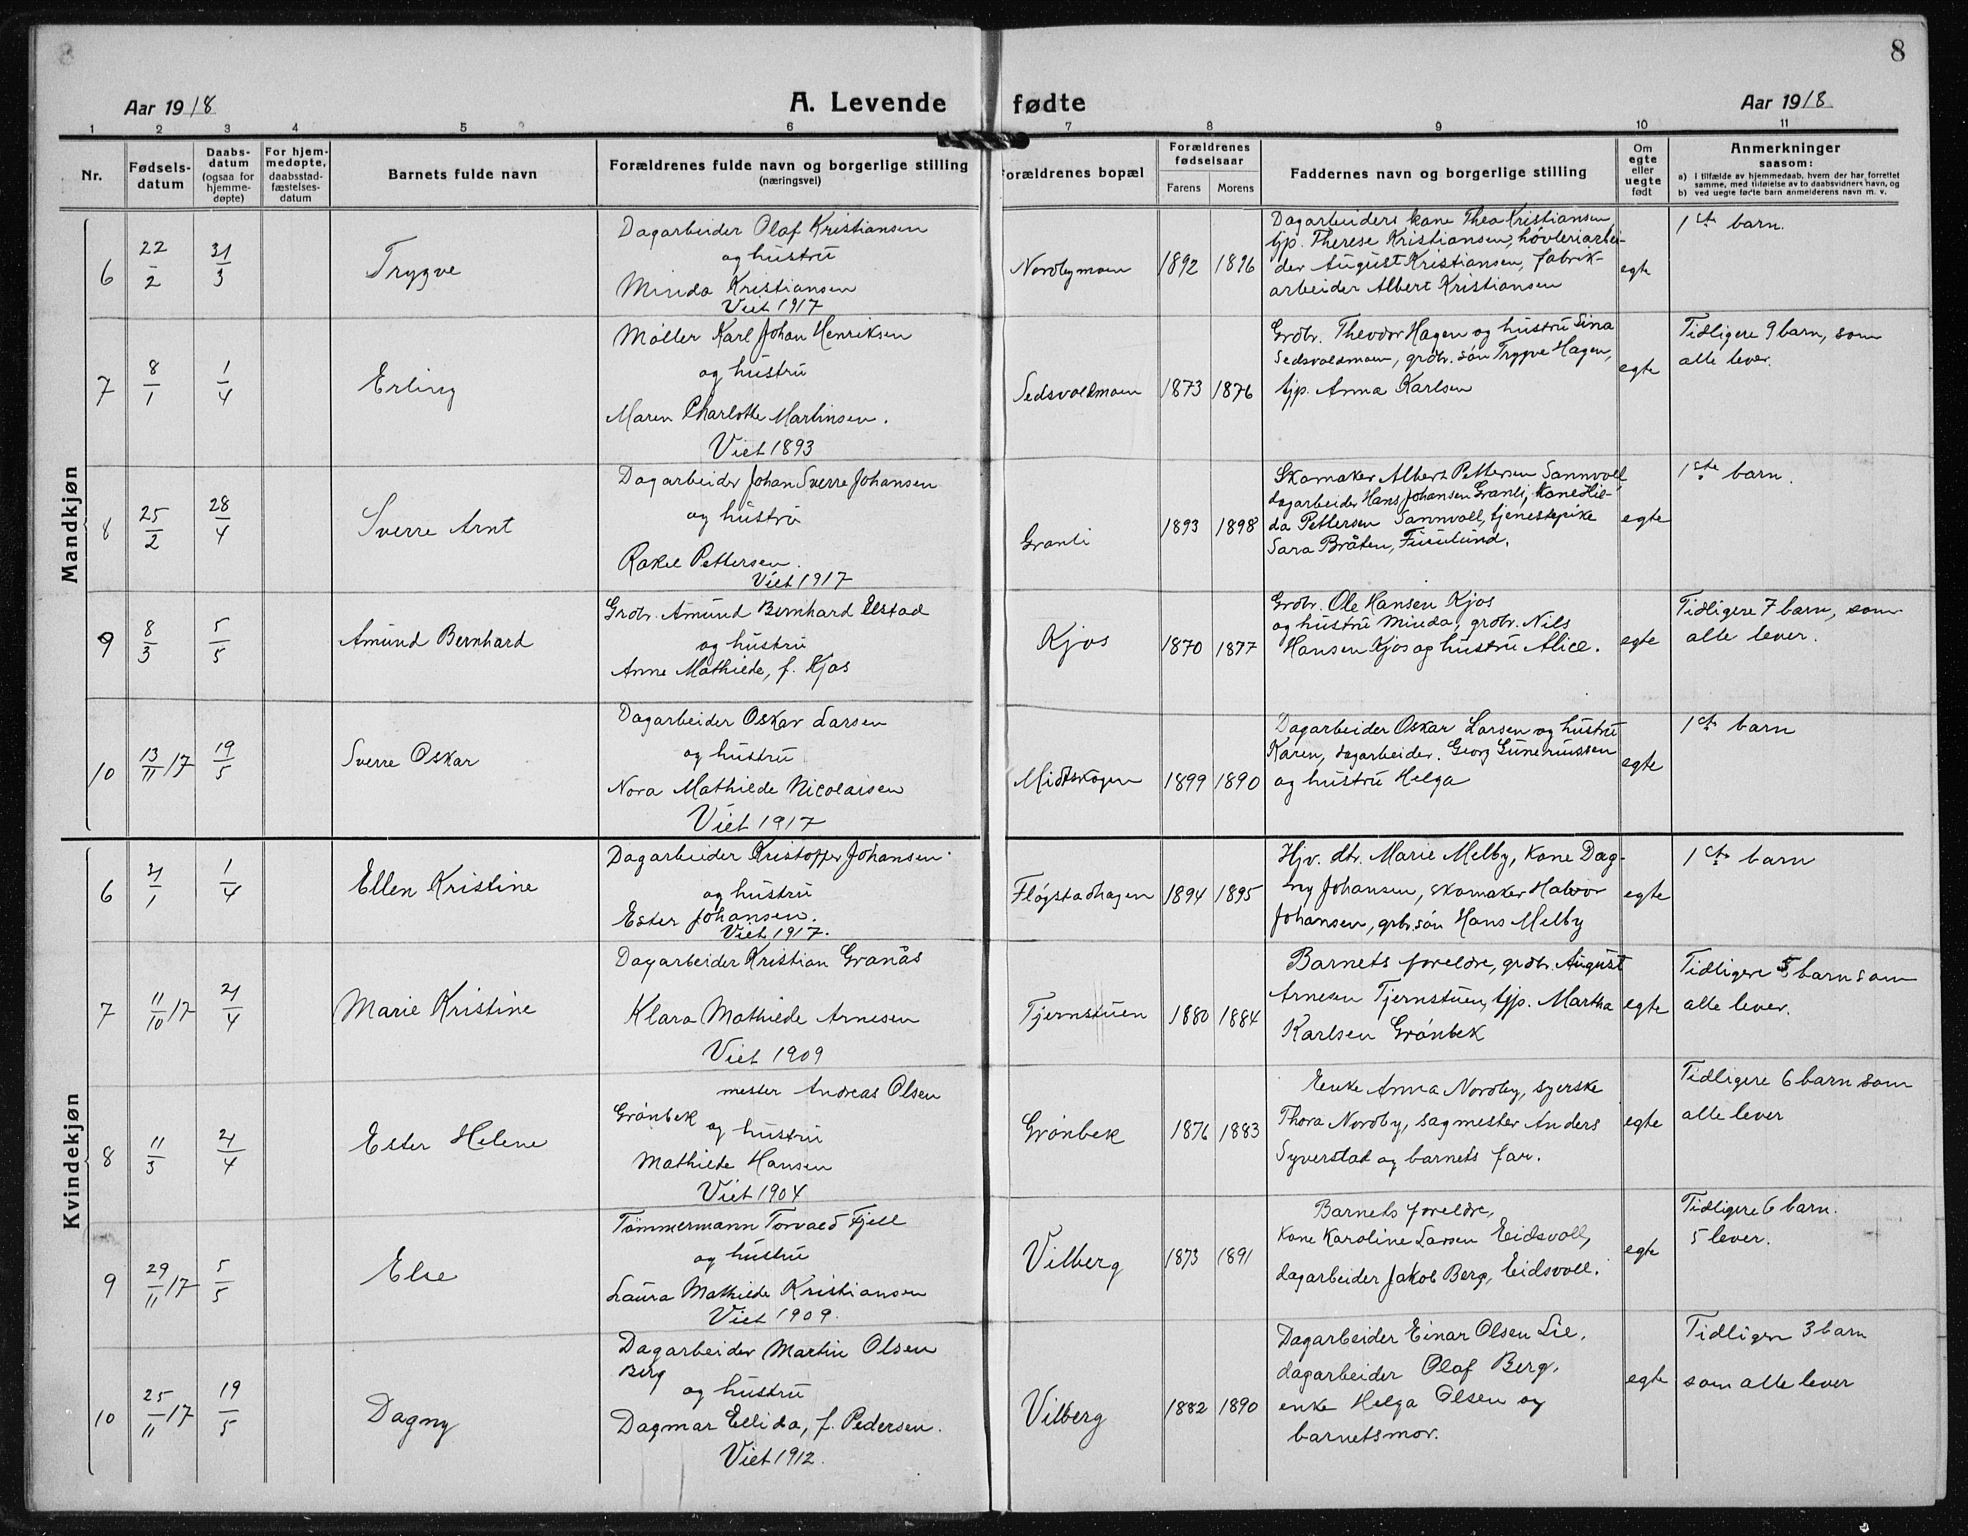 8
Aar 1918
A. Levende fødte
Aar 1918
1 2 3 4 5 6 7 8 9 10 11
Nr.
Fødsels-
datum
Daabs-
datum
(ogsaa for
hjemme-
døpte)
For hjem-
medøpte,
daabsstad-
fæstelses-
datum
Barnets fulde navn
Forældrenes fulde navn og borgerlige stilling
(næringsvei)
Forældrenes bopæl
Forældrenes
fødselsaar
Farens Morens
Faddernes navn og borgerlige stilling
Om
egte
eller
uegte
født
Anmerkninger
saasom:
a) i tilfælde av hjemmedaab, hvem der har forrettet
samme, med tilføielse av to daabsvidners navn, og
b) ved uegte fødte barn anmelderens navn m. v.
Mandkjøn
6
22/2
31/3
Trygve
Dagarbeider Olaf Kristiansen
og hustru
Minda Kristiansen
Viet 1917
Nordbymoen
1892 1896
Dagarbeiders kone Thea Kristiansen,
tjp. Therese Kristiansen, høvleriarbei-
der August Kristiansen, fabrik-
arbeider Albert Kristiansen
egte
1ste barn.
7
8/1
1/4
Erling
Møller Karl Johan Henriksen
og hustru
Maren Charlotte Martinsen.
Viet 1893
Sedsvoldmoen
1873 1876
Grdbr. Theodor Hagen og hustru Lina
Sedsvoldmoen, grdbr. søn Trygve Hagen,
tjp. Anna Karlsen
egte
Tidligere 9 barn, som
alle lever.
8
25/2
28/4
Sverre Arnt
Dagarbeider Johan Sverre Johansen
og hustru
Rakel Pettersen.
Viet 1917
Granli
1893 1898
Skomaker Albert Pettersen Sannvoll,
dagarbeider Hans Johansen Granli, kone Hil-
da Pettersen Sannvoll, tjenestepike
Sara Bråten, Furulund.
egte
1ste barn.
9
8/3
5/5
Amund Bernhard
Grdbr. Amund Bernhard Elstad
og hustru
Anne Mathilde, f. Kjos
Kjos
1870 1877
Grdbr. Ole Hansen Kjos
og hustru Minda, grdbr. Nils
Hansen Kjos og hustru Alice.
egte
Tidligere 7 barn, som
alle lever.
10
13/11 17
19/5
Sverre Oskar
Dagarbeider Oskar Larsen
og hustru
Nora Mathilde Nicolaisen
Viet 1917
Midtskogen
1899 1890
Dagarbeider Oskar Larsen og hustru
Karen, dagarbeider. Georg Gunerussen
og hustru Helga
egte
1ste barn
Kvindekjøn
6
21/1
1/4
Ellen Kristine
Dagarbeider Kristoffer Johansen
og hustru
Ester Johansen.
Viet 1917.
Fløgstadhagen
1894 1895
Hjv. dtr. Marie Melby, kone Dag-
ny Johansen, skomaker Halvor
Johansen, grbr.søn Hans Melby
egte
1ste barn
7
11/10 17
21/4
Marie Kristine
Dagarbeider Kristian Granås
Klara Mathilde Arnesen
Viet 1909
Tjernstuen
1880 1884
Barnets foreldre, grdbr. August
Arnesen Tjernstuen, tjp. Martha
Karlsen Grønbek
egte
Tidligere 5 barn som
alle lever.
8
11/3
21/4
Ester Helene
mester Andreas Olsen
Grønbek og hustru
Mathilde Hansen
Viet 1904
Grønbek
1876 1883
Enke Anna Nordby, syerske
Thora Nordby, sagmester Anders
Syverstad og barnets far.
egte
Tidligere 6 barn som
alle lever
9
29/11 17
5/5
Else
Tømmermann Torvald Fjell
og hustru
Laura Mathilde Kristiansen
Viet 1909.
Vilberg
1873 1891
Barnets foreldre,
kone Karoline Larsen Eidsvoll,
dagarbeider Jakob Berg, Eidsvoll.
egte
Tidligere 6 barn.
5 lever.
10
25/11 17
19/5
Dagny
Dagarbeider Martin Olsen
Berg
og hustru
Dagmar Ellida, f. Pedersen.
Viet 1912.
Vilberg
1882 1890
Dagarbeider Einar Olsen Lie,
dagarbeider Olaf Berg,
enke Helga Olsen og
barnetsmor.
egte
Tidligere 3 barn
som alle lever